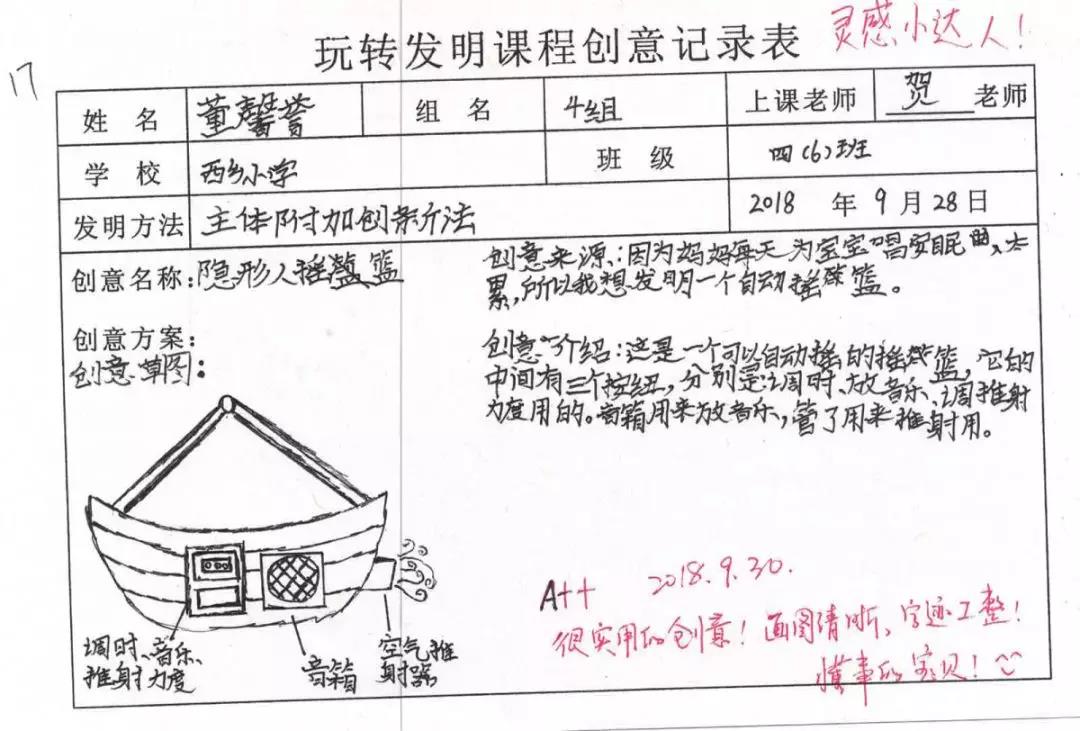 玩转发明课程创意记录表
灵感小达人!
17
姓 名 董馨誉 组 名 4组 上课老师 贺 老师
学 校 西乡小学 班 级 四(6)班
发明方法 主体附加创新法 2018 年 9 月 28 日
创意名称:隐形人摇篮
创意来源:因为妈妈每天为宝宝唱安眠曲、太
累,所以我想发明一个自动摇篮。
创意方案:
创意草图:
创意介绍:这是一个可以自动摇的摇篮,它的
中间有三个按钮,分别是:调时、放音乐、调推射
力度用的。音箱用来放音乐,管了用来推射用。
调时、音乐、
推射力度
音箱
空气推
射器
A++ 2018.9.30.
很实用的创意!画图清晰、字迹工整!
懂事的宝贝!